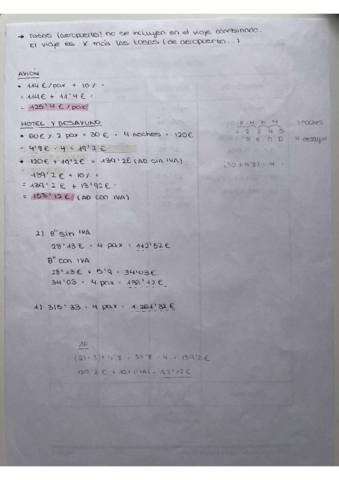 → Tasas (aeropuerto) no se incluyen en el viaje combinado.
El viaje es X más las tasas (de aeropuerto...)
AVIÓN
114€/pax + 10%
= 114€ + 11'4€ =
= 125'4€/pax
HOTEL Y DESAYUNO
60€ % 2 pax = 30€ · 4 noches = 120€
- 4'8€ · 4 = 19'2€
120€ + 19'2€ = 139'2€ (AD sin IVA)
139'2€ + 10% =
= 139'2€ + 13'92€ =
= 153'12€ (AD con IVA)
4 noches
1 2 3 4 5
2) Bº sin IVA
28'13€ · 4 pax = 112'52€
Bº con IVA
28'13€ + 5'9 = 34'03€
34'03 · 4 pax = 136'12€
1) 315'33 · 4 pax = 1.261'32€